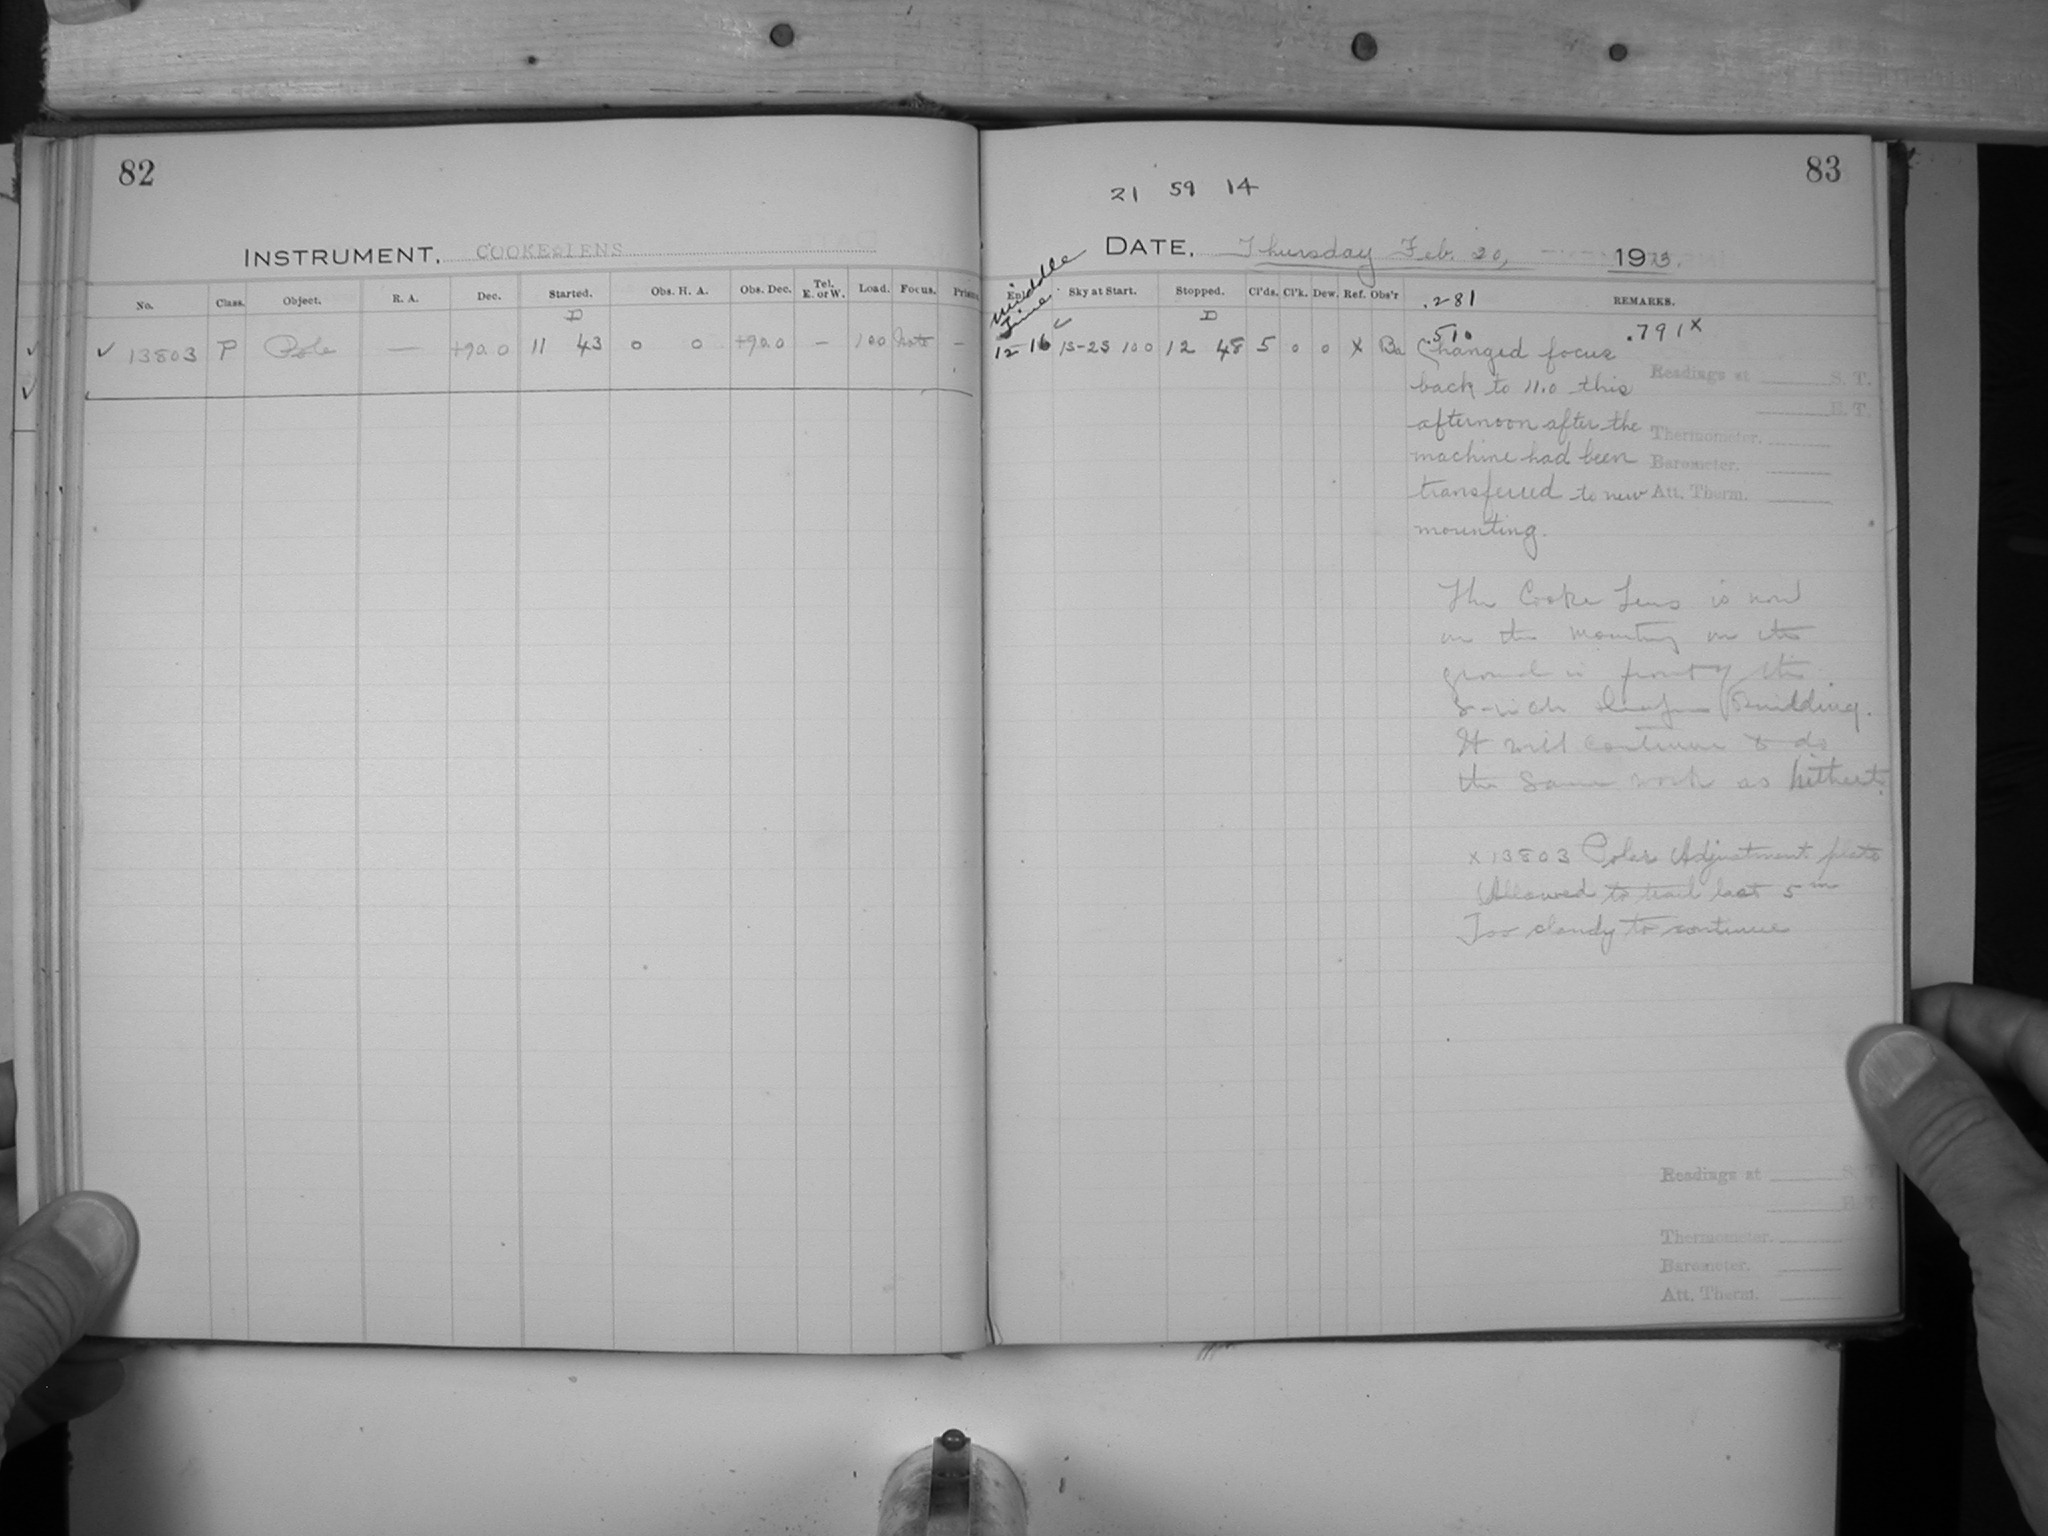 82
INSTRUMENT. COOKE LENS
No. Class. Object. R. A. Dec. Started. Obs. H. A. Obs. Dec. Tel. E. or W. Load. Focus. Prism
D
✓ 13803 P Pole — +90.0 11 43 0 0 +90.0 — 100 Note —
83
21 59 14
DATE, Thursday Feb. 20, 1913.
Middle Time
Sky at Start. Stopped. Cl'ds. Cl'k. Dew. Ref. Obs'r REMARKS.
.281
D
.510 .791 x
12 16 ✓ 15-25 100 12 48 5 0 0 X Ba Changed focus
back to 11.0 this
afternoon after the
machine had been
transferred to new
mounting.
Readings at S. T.
E. T.
Thermometer.
Barometer.
Att. Therm.
The Cooke Lens is now
on the mounting on the
ground in front of the
8-inch Building.
It will continue to do
the same work as hitherto.
x 13803 Polar Adjustment plate
Allowed to trail last 5m
Too cloudy to continue
Readings at S. T.
E. T.
Thermometer.
Barometer.
Att. Therm.